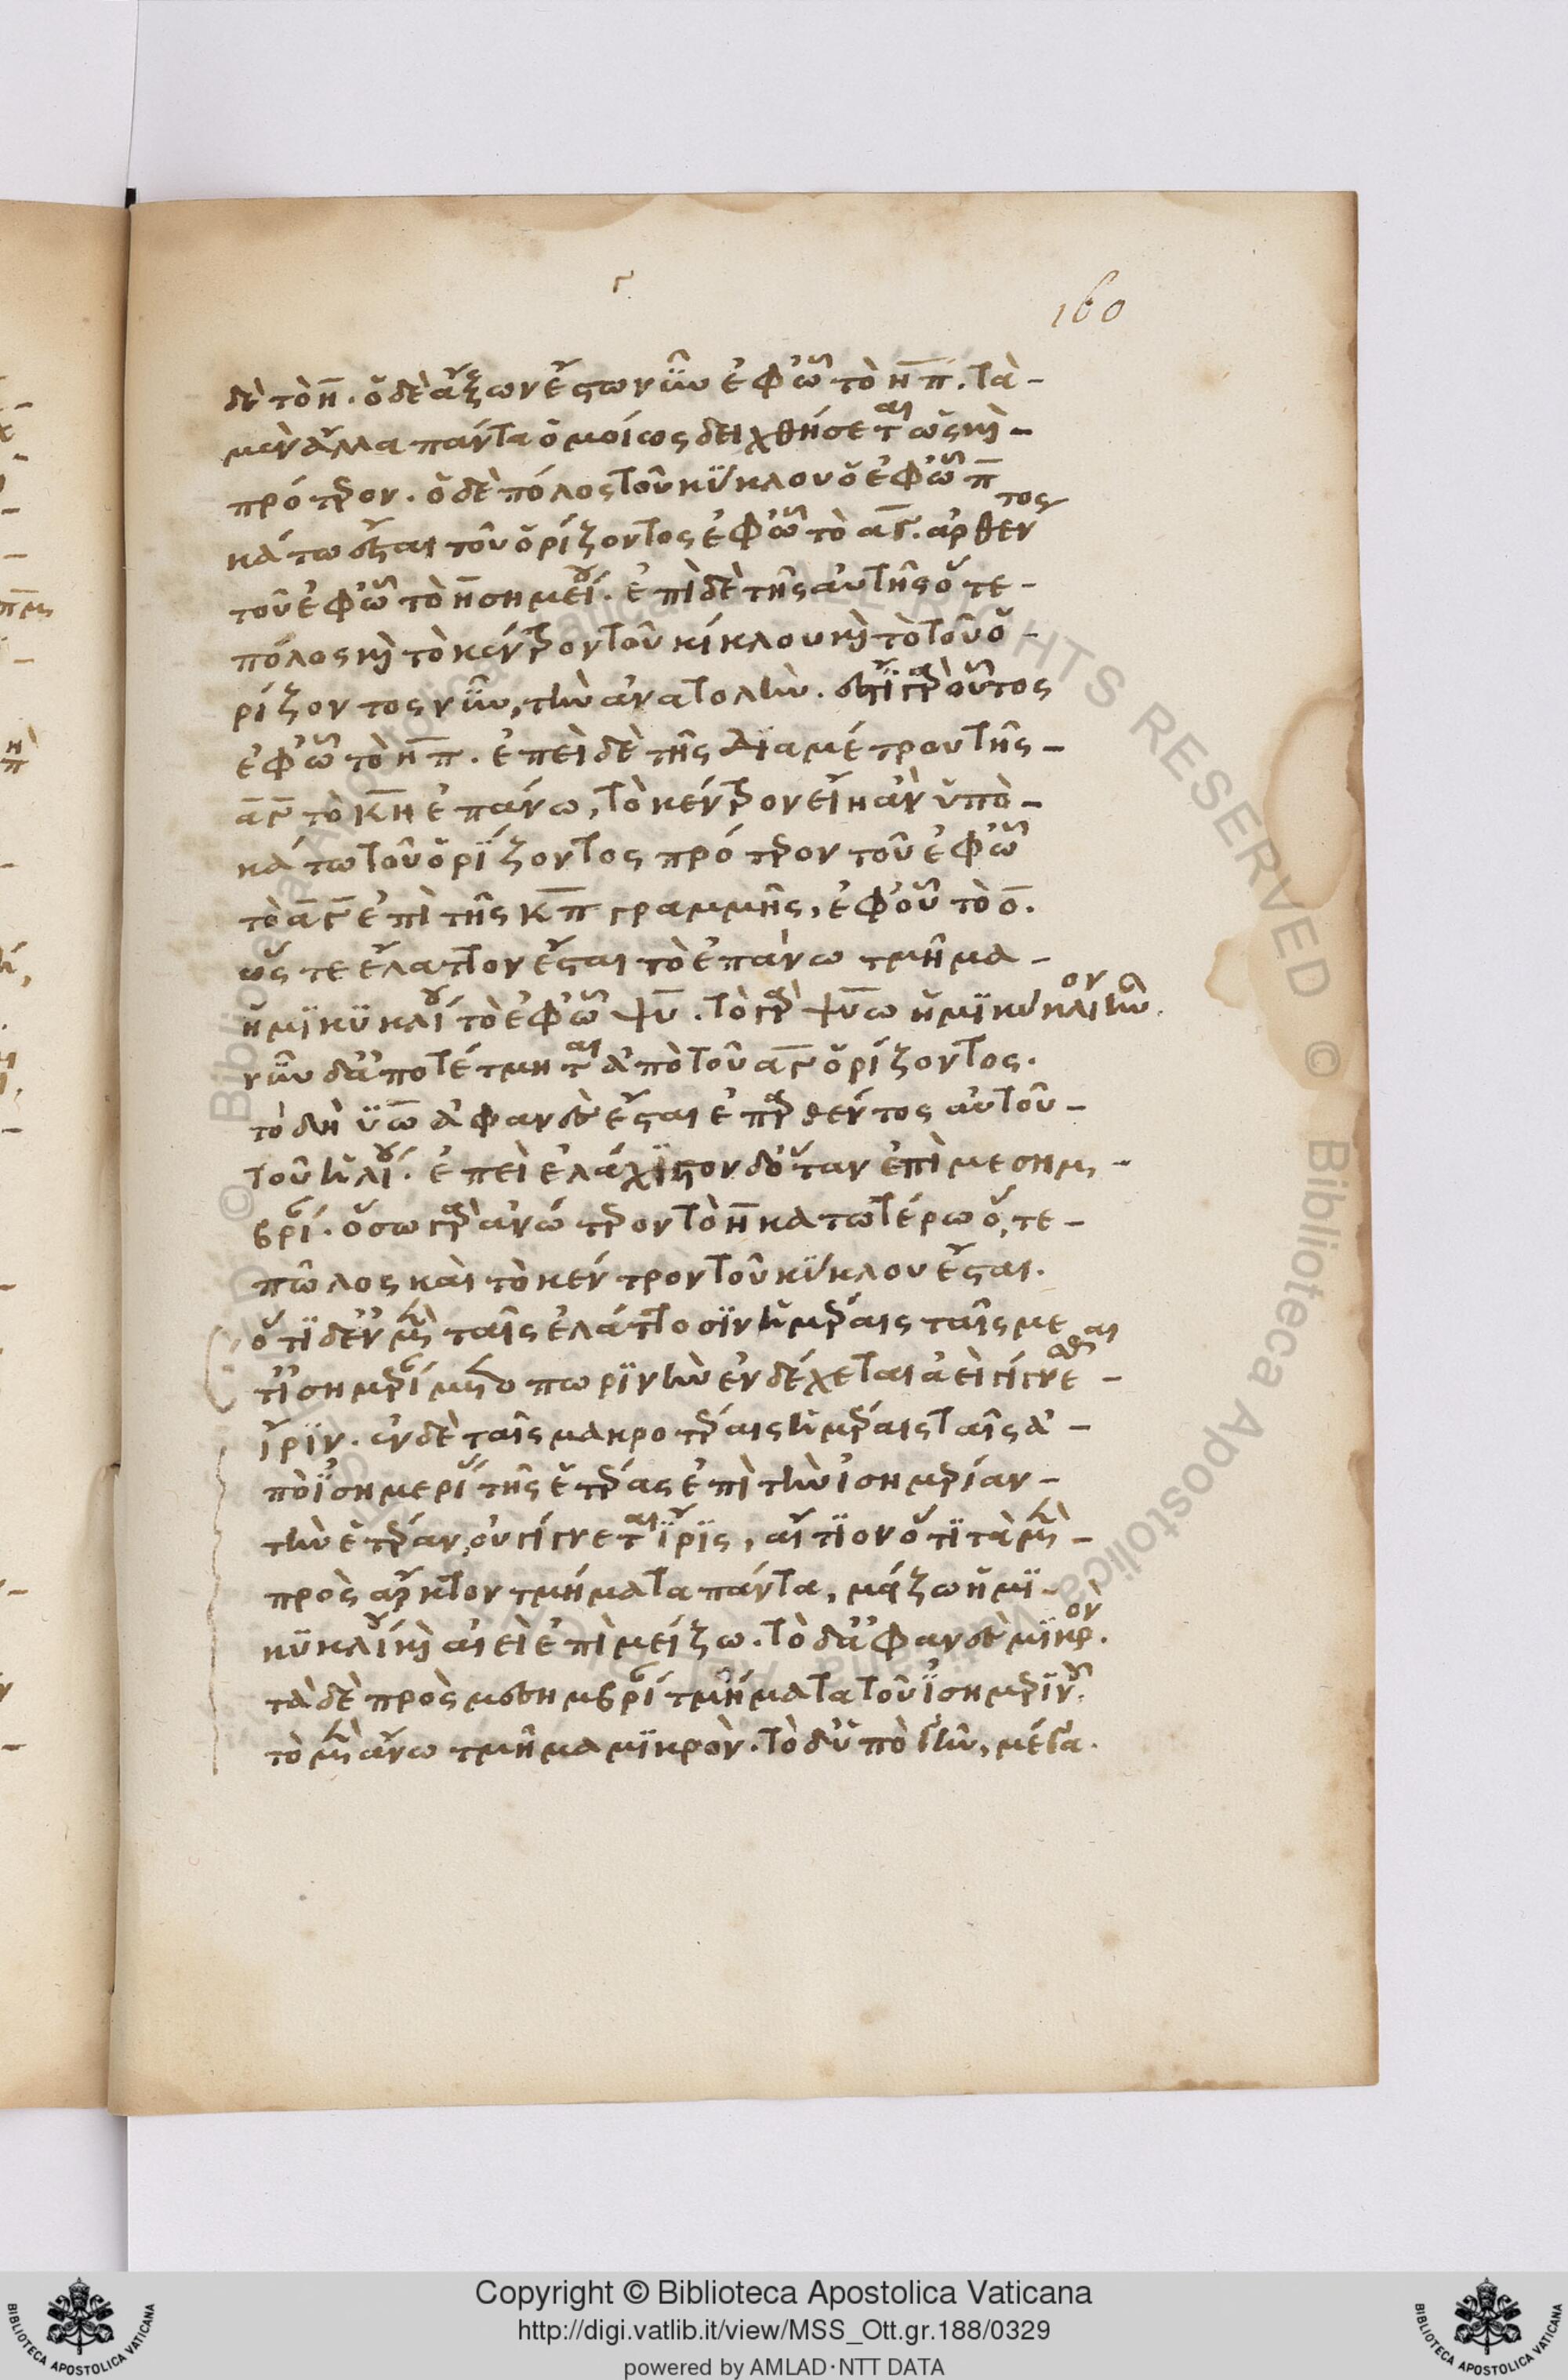 γ
160
δὲ τὸ η̅. ὁ δὲ ἄξων ἔστω νῦν ἐφ' ὧ τὸ η̅π̅. τὰ-
μὲν ἄλλα πάντα ὁμοίως δειχθήσεται ὡς κὶ-
πρότερον. ὁ δὲ πόλος τοῦ κύκλου ὁ ἐφ' ὧ π̅
κάτω ἔσται τοῦ ὁρίζοντος ἐφ' ὧ τὸ α̅γ̅. ἀρθέντος
τοῦ ἐφ' ὧ τὸ η̅ σημείου. ἐπὶ δὲ τῆς αὐτῆς ὅ τε-
πόλος κὶ τὸ κέντρον τοῦ κύκλου κὶ τὸ τοῦ ὁ-
ρίζοντος νῦν, τὴν ἀνατολὴν. ἔστι γὰρ οὗτος
ἐφ' ὧ τὸ η̅π̅. ἐπεὶ δὲ τῆς διαμέτρου τῆς-
α̅γ̅ τὸ κ̅η̅ ἐπάνω, τὸ κέντρον εἴη ἂν ὑπο-
κάτω τοῦ ὁρίζοντος πρότερον τοῦ ἐφ' ὧ
τὸ α̅γ̅ ἐπὶ τῆς κ̅π̅ γραμμῆς, ἐφ' οὗ τὸ ο̅.
ὥς τε ἔλαττον ἔσται τὸ ἐπάνω τμῆμα-
ἡμικυκλίου τὸ ἐφ' ὧ ψ̅υ̅. τὸ γὰρ ψ̅υ̅ω ἡμικύκλιον ἦν.
νῦν δ' ἀποτέτμηται ἀπὸ τοῦ α̅γ̅ ὁρίζοντος.
τὸ δὴ υ̅ω̅ ἀφανὲς ἔσται ἐπαρθέντος αὐτοῦ-
τοῦ ἡλίου. ἐπεὶ ἐλάχιστον δ' ὅταν ἐπὶ μεσημ-
βρίας. ὅσω γὰρ ἀνώτερον τὸ η̅ κατωτέρω ὅ, τε-
πῶλος καὶ τὸ κέντρον τοῦ κύκλου ἔσται.
ὅτι δ' ἐν μὲν ταῖς ἐλάττοσιν ἡμέραις ταῖς με
τ' ἰσημερίαν μετοπωρινὴν ἐνδέχεται ἀεὶ γίγνεσθαι-
ἶριν. ἐν δὲ ταῖς μακροτέραις ἡμέραις ταῖς ἀ-
πὸ ἰσημερίας τῆς ἑτέρας ἐπὶ τὴν ἰσημερίαν-
τὴν ἑτέραν, οὐ γίγνεται ἶρις, αἴτιον ὅτι τὰ μὲν-
πρὸς ἄρκτον τμήματα πάντα, μείζω ἡμι-
κυκλίου κὶ αἰεὶ ἐπὶ μείζω. τὸ δ' ἀφανὲς μικρόν.
τὰ δὲ πρὸς μεσημβρίαν τμήματα τοῦ ἰσημερινοῦ.
τὸ μὲν ἄνω τμῆμα μικρὸν. τὸ δ' ὑπὸ γῆν, μέγα.
Copyright © Biblioteca Apostolica Vaticana
http://digi.vatlib.it/view/MSS_Ott.gr.188/0329
powered by AMLAD·NTT DATA